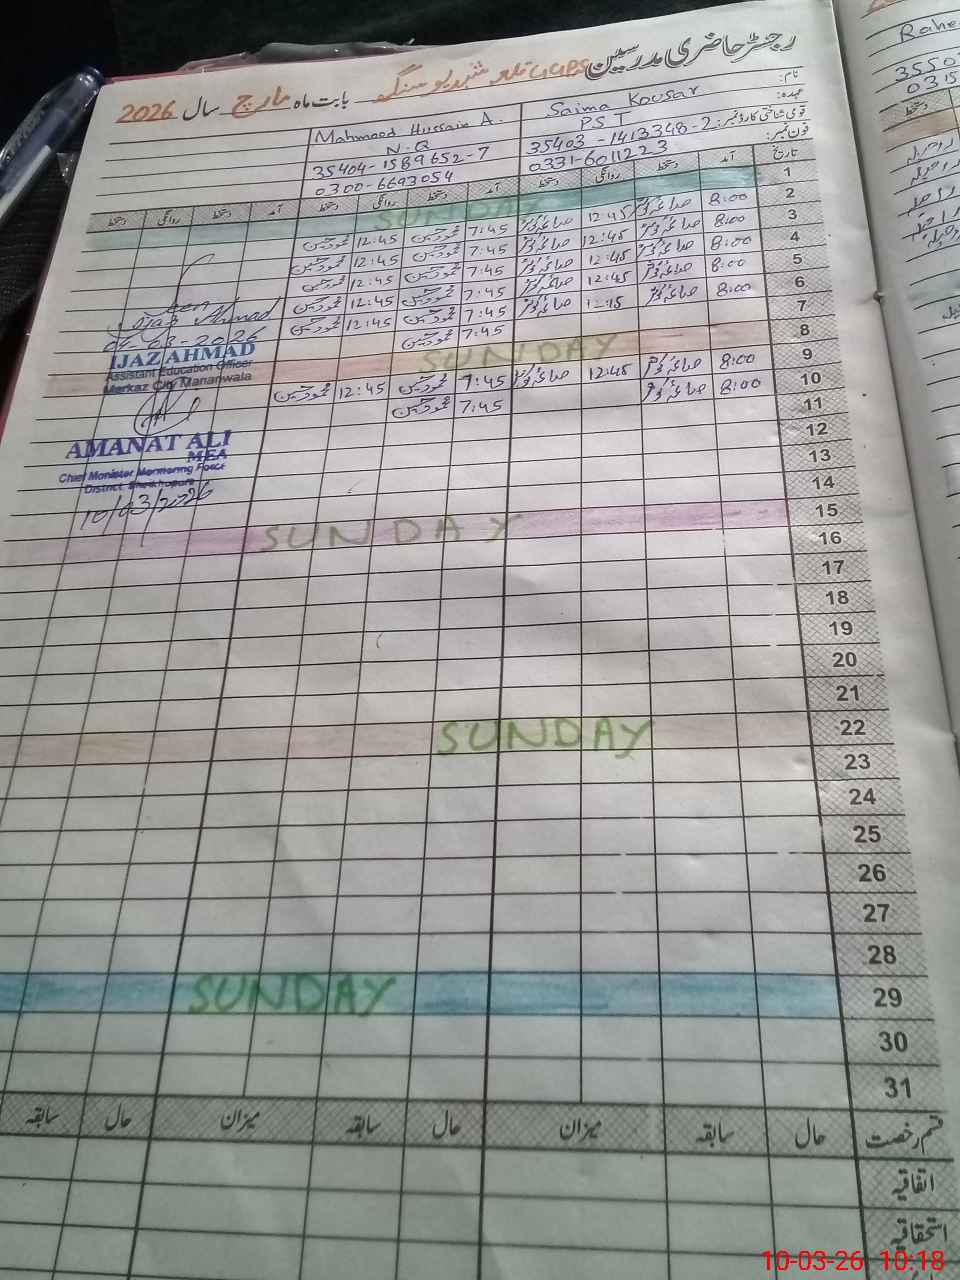 رجسٹر حاضری مدرسین GGPS قلعہ شہدیو سنگھ بابت ماہ مارچ سال 2026
نام: Saima Kousar Mahmood Hussain A.
عہدہ: PST N.Q
قومی شناختی کارڈ نمبر: 35403-1413348-2 35404-1589652-7
فون نمبر: 0331-6011223 0300-6693054
تاریخ آمد دستخط روانگی دستخط آمد دستخط روانگی دستخط آمد دستخط روانگی دستخط
1 SUNDAY
2 8:00 صائمہ کوثر 12:45 صائمہ کوثر 7:45 محمود حسین 12:45 محمود حسین
3 8:00 صائمہ کوثر 12:45 صائمہ کوثر 7:45 محمود حسین 12:45 محمود حسین
4 8:00 صائمہ کوثر 12:45 صائمہ کوثر 7:45 محمود حسین 12:45 محمود حسین
5 8:00 صائمہ کوثر 12:45 صائمہ کوثر 7:45 محمود حسین 12:45 محمود حسین
6 8:00 صائمہ کوثر 12:45 صائمہ کوثر 7:45 محمود حسین 12:45 محمود حسین
7 7:45 محمود حسین
8 SUNDAY
9 8:00 صائمہ کوثر 12:45 صائمہ کوثر 7:45 محمود حسین 12:45 محمود حسین
10 8:00 صائمہ کوثر 7:45 محمود حسین
11
12
13
14
15 SUNDAY
16
17
18
19
20
21
22 SUNDAY
23
24
25
26
27
28
29 SUNDAY
30
31
Seen
Ijaz Ahmad
04-03-2026
IJAZ AHMAD
Assistant Education Officer
Merkaz City Mananwala
AMANAT ALI
MEA
Chief Monister Mormoring Force
District Sheikhupura
10/03/2026
قسم رخصت حال سابقہ میزان حال سابقہ میزان حال سابقہ
اتفاقیہ
استحقاقیہ
Rahe
3550
0315
10-03-26 10:18